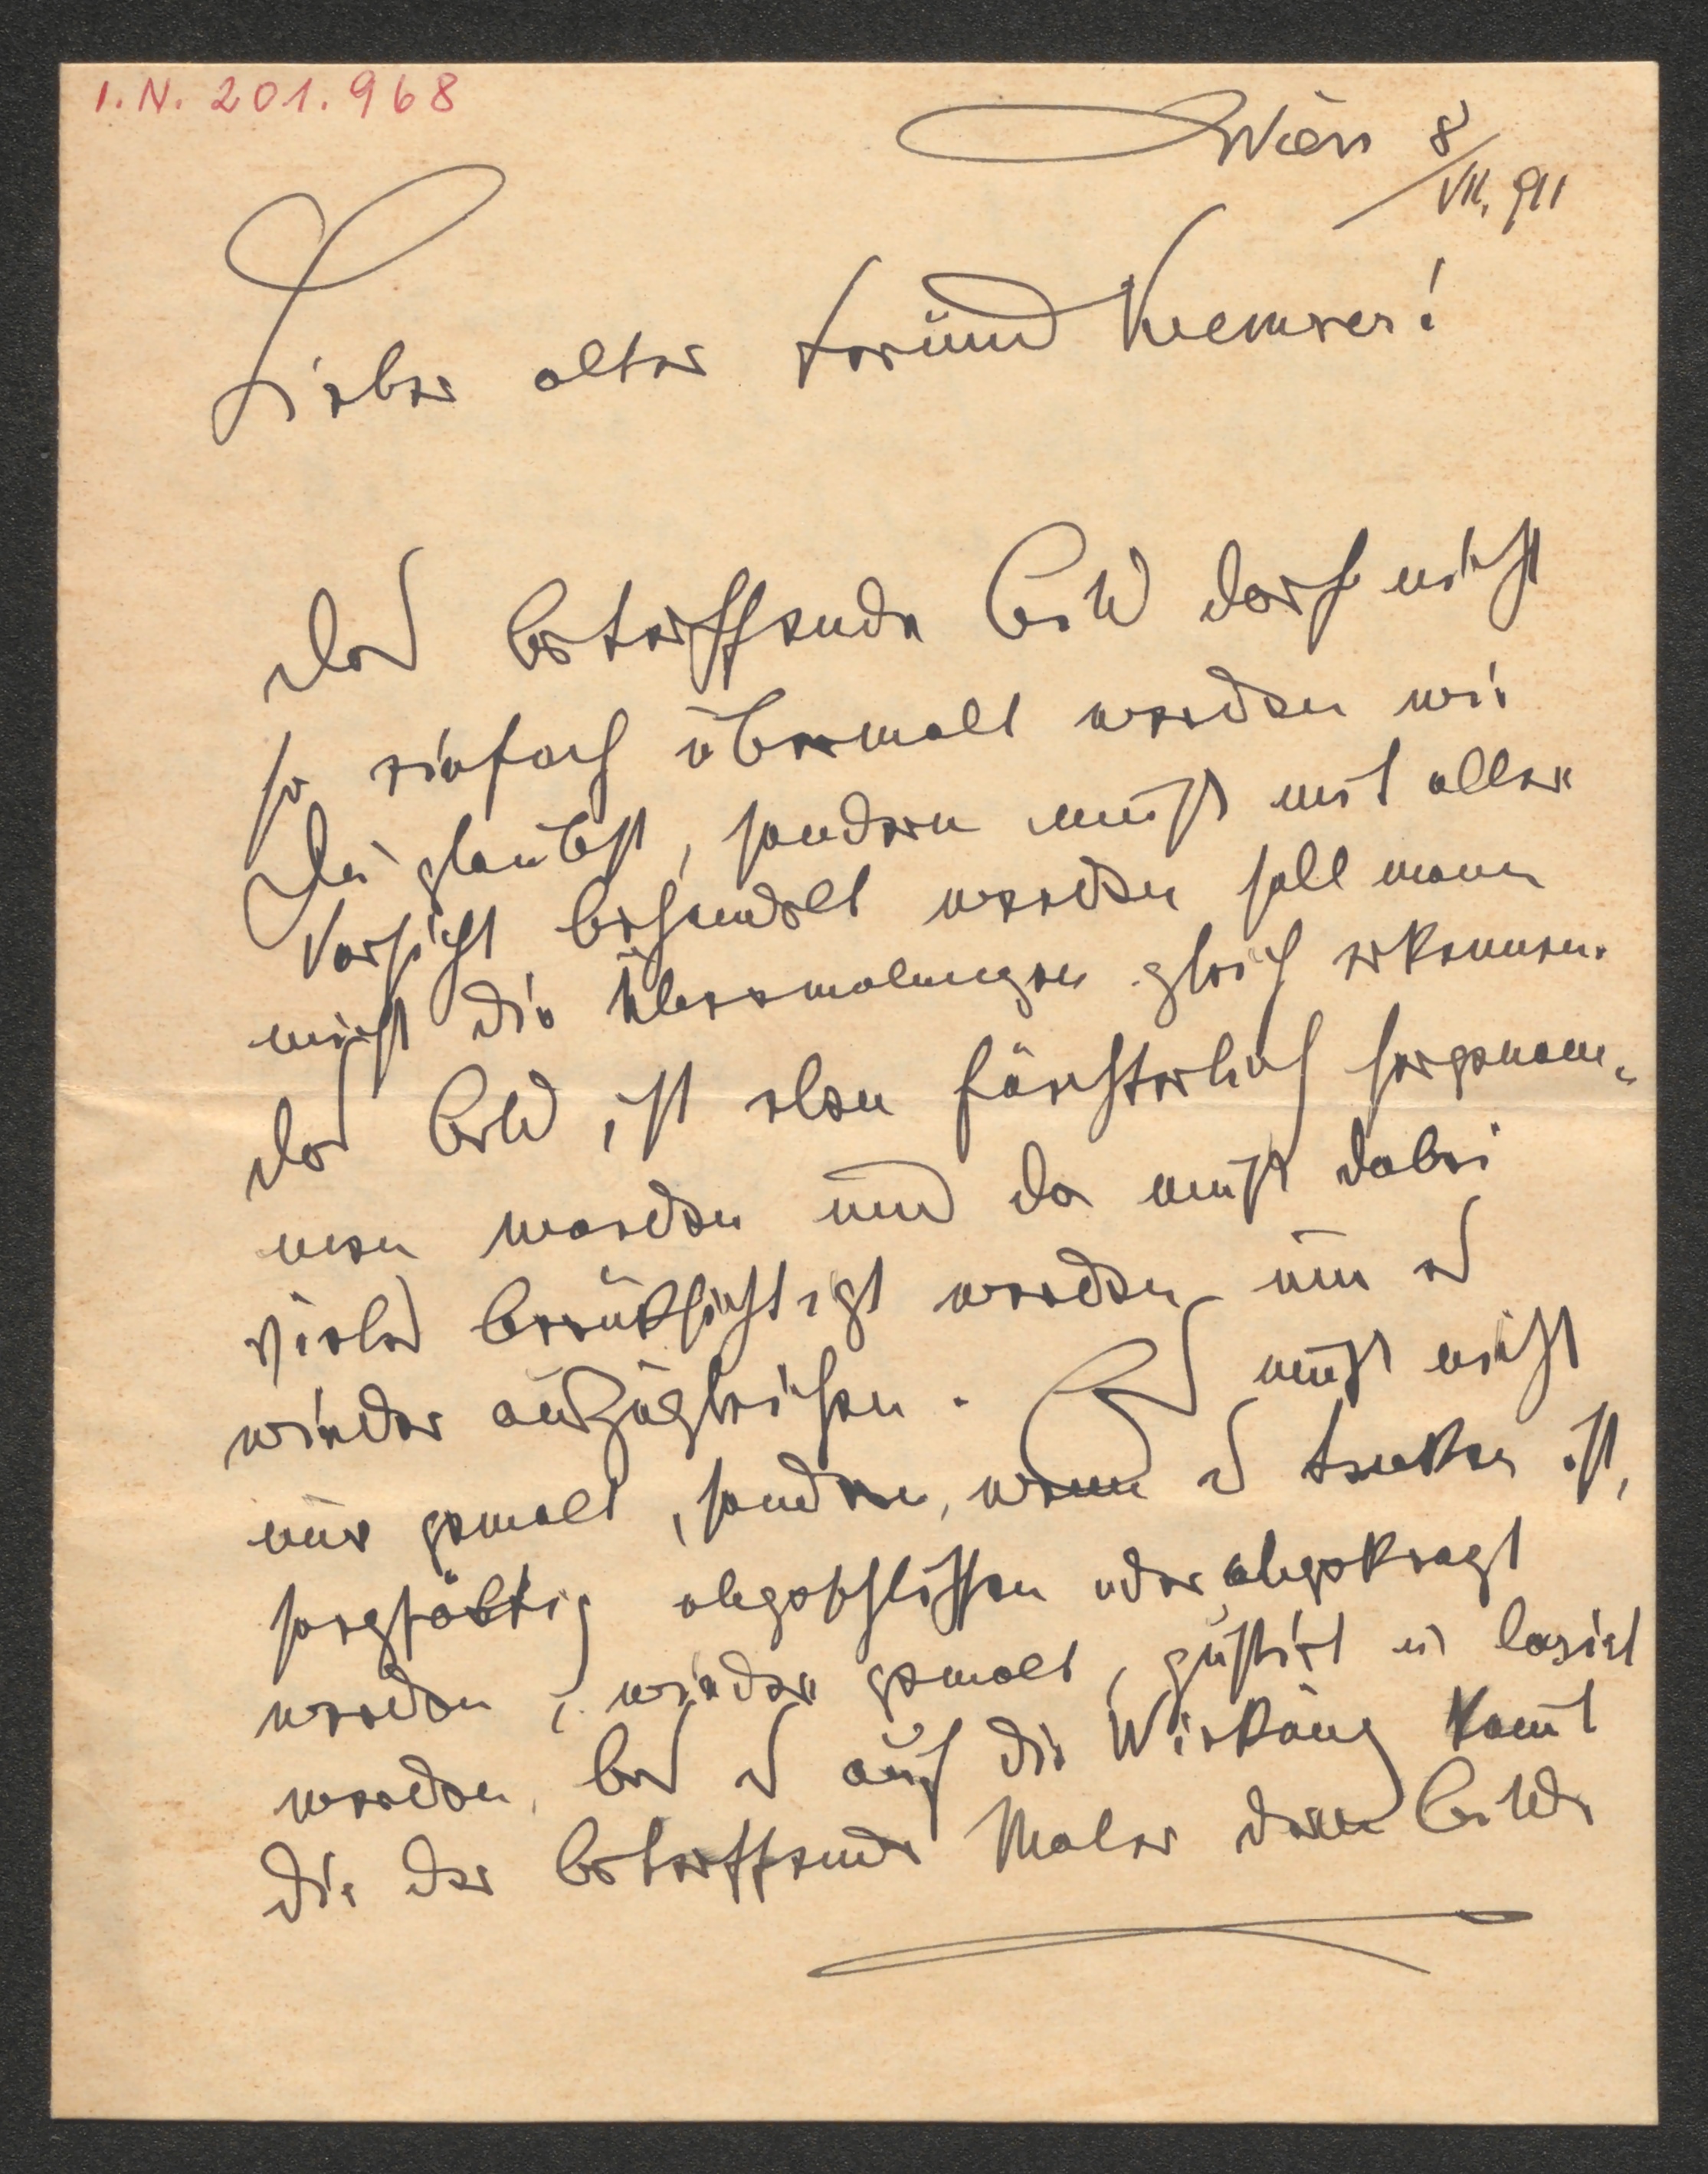 I.N. 201.968
Wien 8/VII. 911
Lieber alter Freund Kremser!
Das betreffende Bild darf nicht
so einfach übermalt werden wie
Du glaubst, sondern muß mit aller
Vorsicht behandelt werden soll man
nicht die Übermalungen gleich erkennen.
Das Bild ist eben fürchterlich hergenom-
men worden und da muß dabei
vieles berücksichtigt werden um es
wieder auszugleichen. Es muß nicht
nur gemalt, sondern, wenn es trocken ist,
sorgfältig abgeschliffen oder abgekratzt
werden, wieder gemalt, gustirt u lasirt
werden, bis es auf die Wirkung komt
die der betreffende Maler dem Bilde